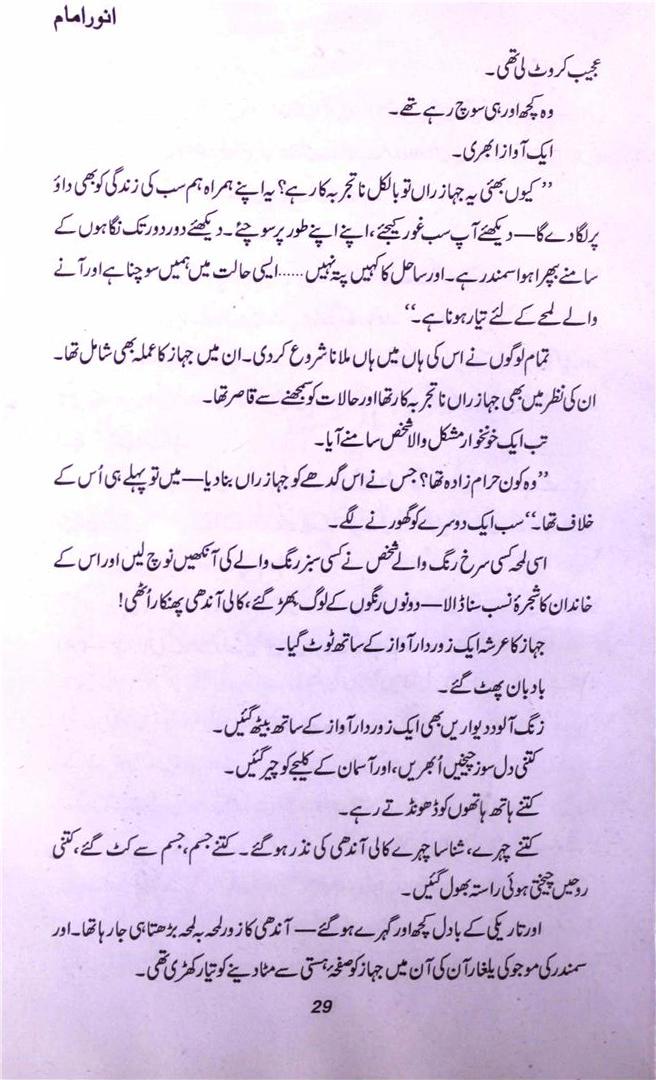 انور امام
عجیب کروٹ لی تھی۔
وہ کچھ اور ہی سوچ رہے تھے۔
ایک آواز ابھری۔
’’کیوں بھئی یہ جہاز راں تو بالکل ناتجربہ کار ہے؟ یہ اپنے ہمراہ ہم سب کی زندگی کو بھی داؤ
پر لگا دے گا—دیکھئے آپ سب غور کیجئے، اپنے اپنے طور پر سوچئے۔ دیکھئے دور دور تک نگاہوں کے
سامنے بپھرا ہوا سمندر ہے۔ اور ساحل کا کہیں پتہ نہیں……ایسی حالت میں ہمیں سوچنا ہے اور آنے
والے لمحے کے لئے تیار ہونا ہے۔‘‘
تمام لوگوں نے اس کی ہاں میں ہاں ملانا شروع کردی۔ ان میں جہاز کا عملہ بھی شامل تھا۔
ان کی نظر میں بھی جہاز راں ناتجربہ کار تھا اور حالات کو سمجھنے سے قاصر تھا۔
تب ایک خونخوار مشکل والا شخص سامنے آیا۔
’’وہ کون حرام زادہ تھا؟ جس نے اس گدھے کو جہاز راں بنا دیا—میں تو پہلے ہی اُس کے
خلاف تھا۔‘‘ سب ایک دوسرے کو گھورنے لگے۔
اسی لمحہ کسی سرخ رنگ والے شخص نے کسی سبز رنگ والے کی آنکھیں نوچ لیں اور اس کے
خاندان کا شجرۂ نسب سنا ڈالا—دونوں رنگوں کے لوگ بھڑ گئے، کالی آندھی پھنکار اُٹھی!
جہاز کا عرشہ ایک زوردار آواز کے ساتھ ٹوٹ گیا۔
بادبان پھٹ گئے۔
زنگ آلود دیواریں بھی ایک زوردار آواز کے ساتھ بیٹھ گئیں۔
کتنی دل سوز چیخیں اُبھریں، اور آسمان کے کلیجے کو چیر گئیں۔
کتنے ہاتھ ہاتھوں کو ڈھونڈتے رہے۔
کتنے چہرے، شناسا چہرے کالی آندھی کی نذر ہوگئے۔ کتنے جسم، جسم سے کٹ گئے، کتنی
روحیں چیختی ہوئی راستہ بھول گئیں۔
اور تاریکی کے بادل کچھ اور گہرے ہوگئے—آندھی کا زور لمحہ بہ لمحہ بڑھتا ہی جارہا تھا۔ اور
سمندر کی موجو کی یلغار آن کی آن میں جہاز کو صفحۂ ہستی سے مٹا دینے کو تیار کھڑی تھی۔
29